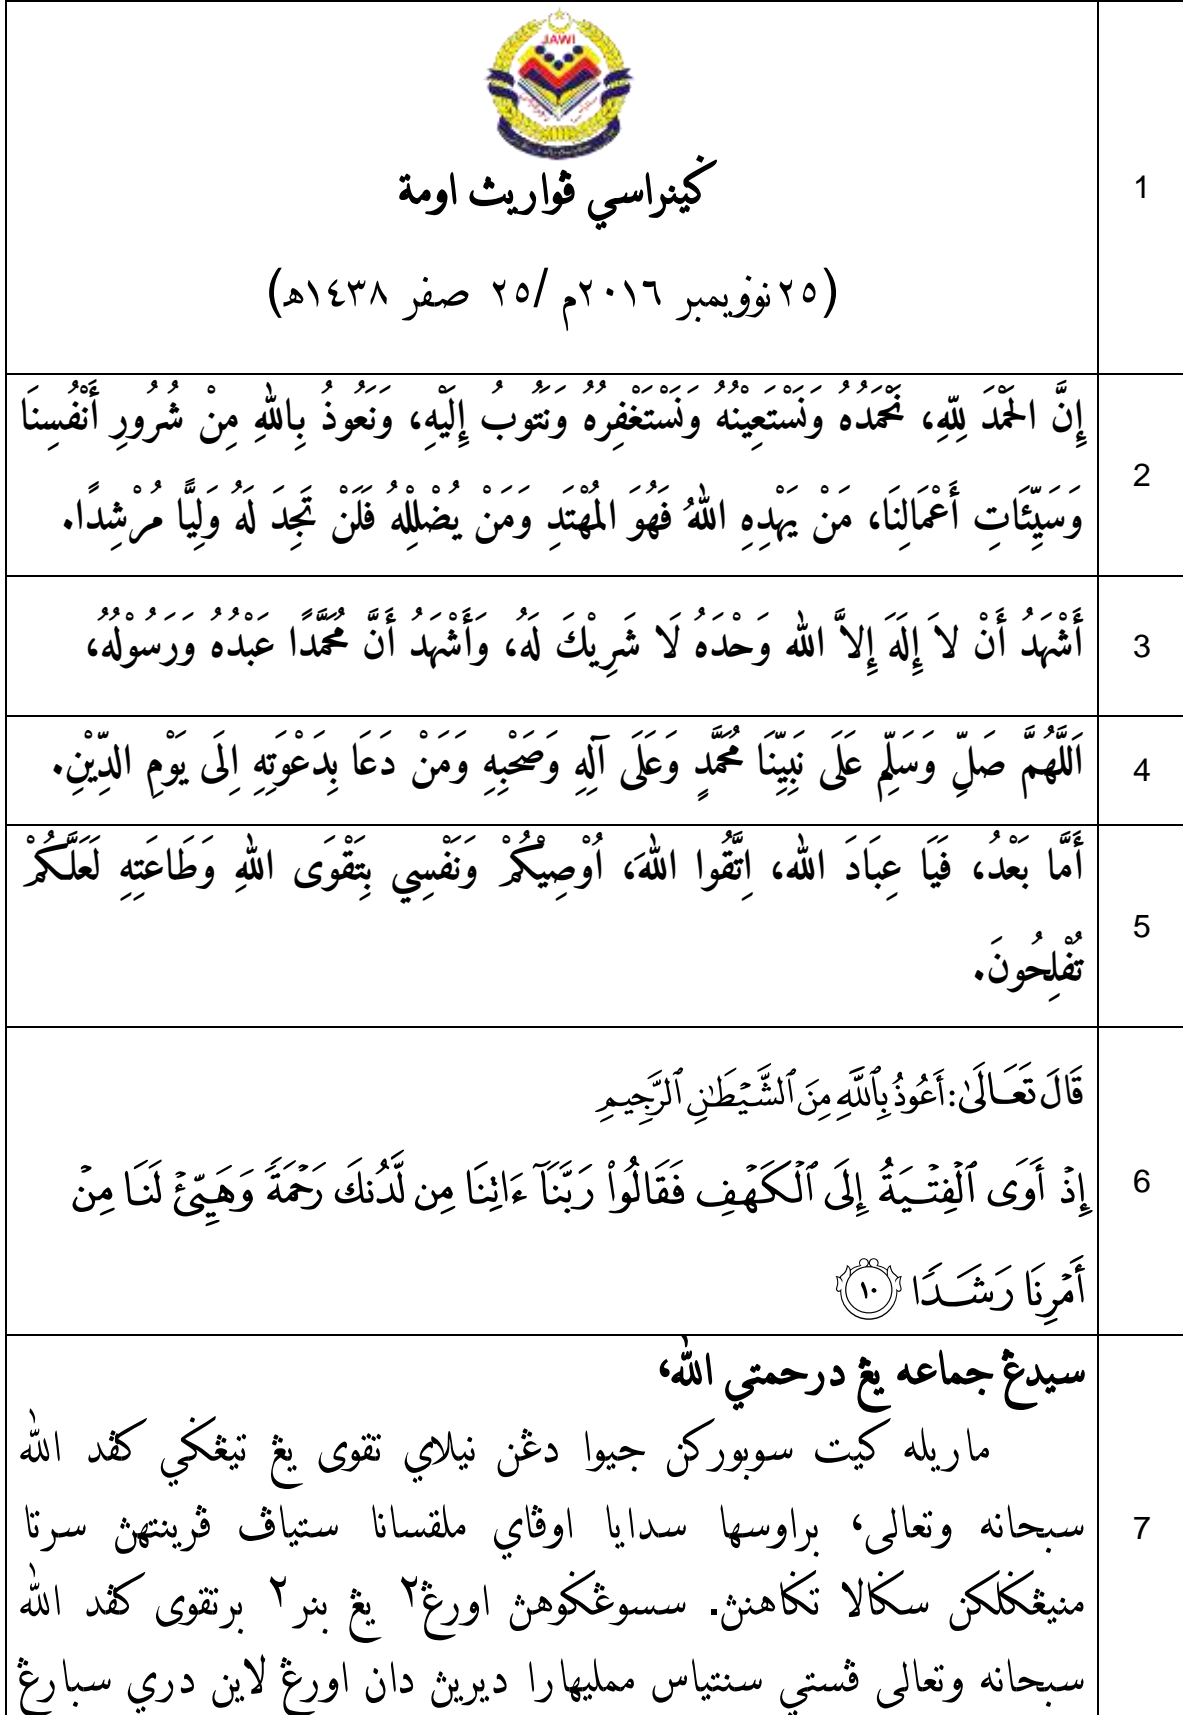 JAWI
ݢينراسي ڤواريث اومة
1
(٢٥ نوۏيمبر ٢٠١٦م /٢٥ صفر ١٤٣٨ه)
إِنَّ الحَمْدَ لِلّٰهِ، نَحْمَدُهُ وَنَسْتَعِيْنُهُ وَنَسْتَغْفِرُهُ وَنَتُوبُ إِلَيْهِ، وَنَعُوذُ بِاللهِ مِنْ شُرُورِ أَنْفُسِنَا
2
وَسَيِّئَاتِ أَعْمَالِنَا، مَنْ يَهْدِهِ اللهُ فَهُوَ المُهْتَدِ وَمَنْ يُضْلِلْهُ فَلَنْ تَجِدَ لَهُ وَلِيًّا مُرْشِدًا.
أَشْهَدُ أَنْ لاَ إِلَهَ إِلاَّ الله وَحْدَهُ لَا شَرِيْكَ لَهُ، وَأَشْهَدُ أَنَّ مُحَمَّدًا عَبْدُهُ وَرَسُوْلُهُ،
3
اَللَّهُمَّ صَلِّ وَسَلِّمْ عَلَى نَبِيِّنَا مُحَمَّدٍ وَعَلَى آلِهِ وَصَحْبِهِ وَمَنْ دَعَا بِدَعْوَتِهِ اِلَى يَوْمِ الدِّيْنِ.
4
أَمَّا بَعْدُ، فَيَا عِبَادَ الله، اِتَّقُوا اللهَ، اُوْصِيْكُمْ وَنَفْسِي بِتَقْوَى اللهِ وَطَاعَتِهِ لَعَلَّكُمْ
5
تُفْلِحُونَ.
قَالَ تَعَالَىٰ: أَعُوذُ بِٱللَّهِ مِنَ ٱلشَّيْطَٰنِ ٱلرَّجِيمِ
إِذْ أَوَى ٱلْفِتْيَةُ إِلَى ٱلْكَهْفِ فَقَالُوا۟ رَبَّنَآ ءَاتِنَا مِن لَّدُنكَ رَحْمَةً وَهَيِّئْ لَنَا مِنْ
6
أَمْرِنَا رَشَدًا ١٠
سيدڠ جماعه يڠ درحمتي الله،
ماريله كيت سوبوركن جيوا دڠن نيلاي تقوى يڠ تيڠݢي كڤد الله
سبحانه وتعالى، براوسها سدايا اوڤاي ملقسانا ستياڤ ڤرينتهڽ سرتا
7
منيڠݢلكن سݢالا تݢاهنڽ. سسوڠݢوهڽ اورڠ٢ يڠ بنر٢ برتقوى كڤد الله
سبحانه وتعالى ڤستي سنتياس ممليهارا ديريڽ دان اورڠ لاين دري سبارڠ